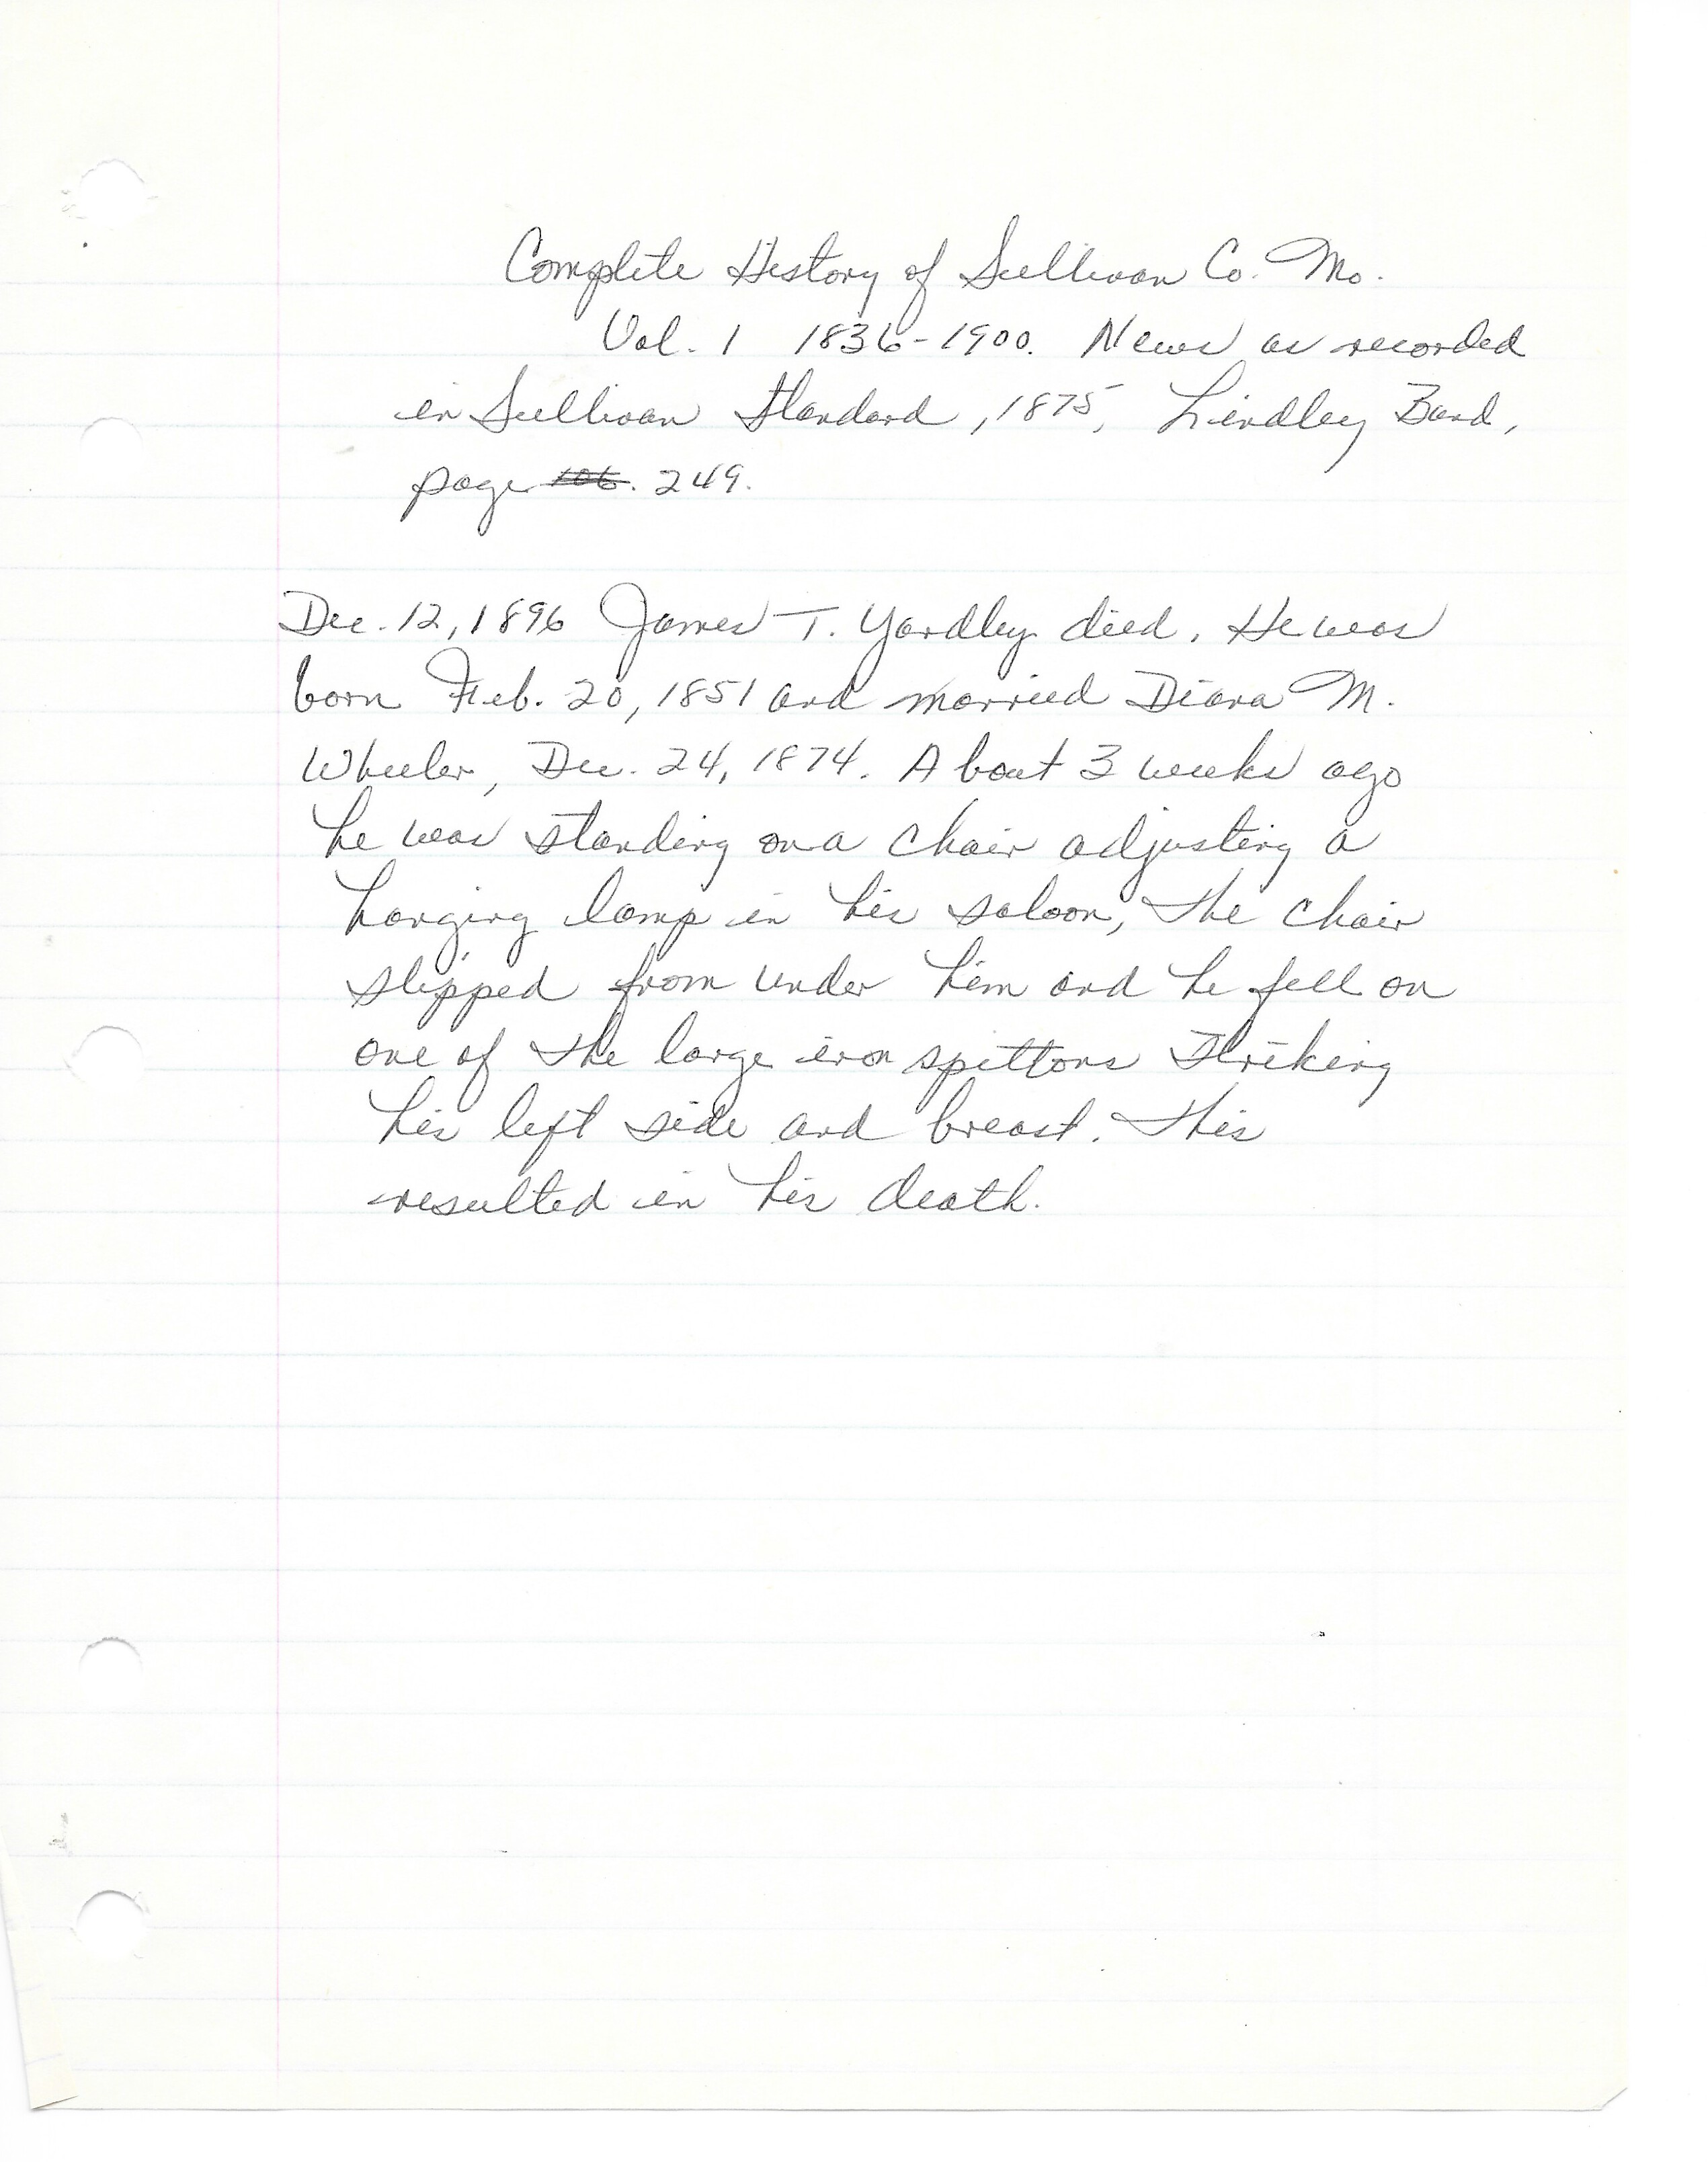 Complete History of Sullivan Co. Mo.
Vol. 1 1836-1900. News as recorded
in Sullivan Standard, 1875, Lindley Band,
page 106. 249.
Dec. 12, 1896 James T. Yardley died. He was
born Feb. 20, 1851 and married Diana M.
Wheeler, Dec. 24, 1874. About 3 weeks ago
he was standing on a chair adjusting a
hanging lamp in his saloon, the chair
slipped from under him and he fell on
one of the large iron spittons striking
his left side and breast. This
resulted in his death.